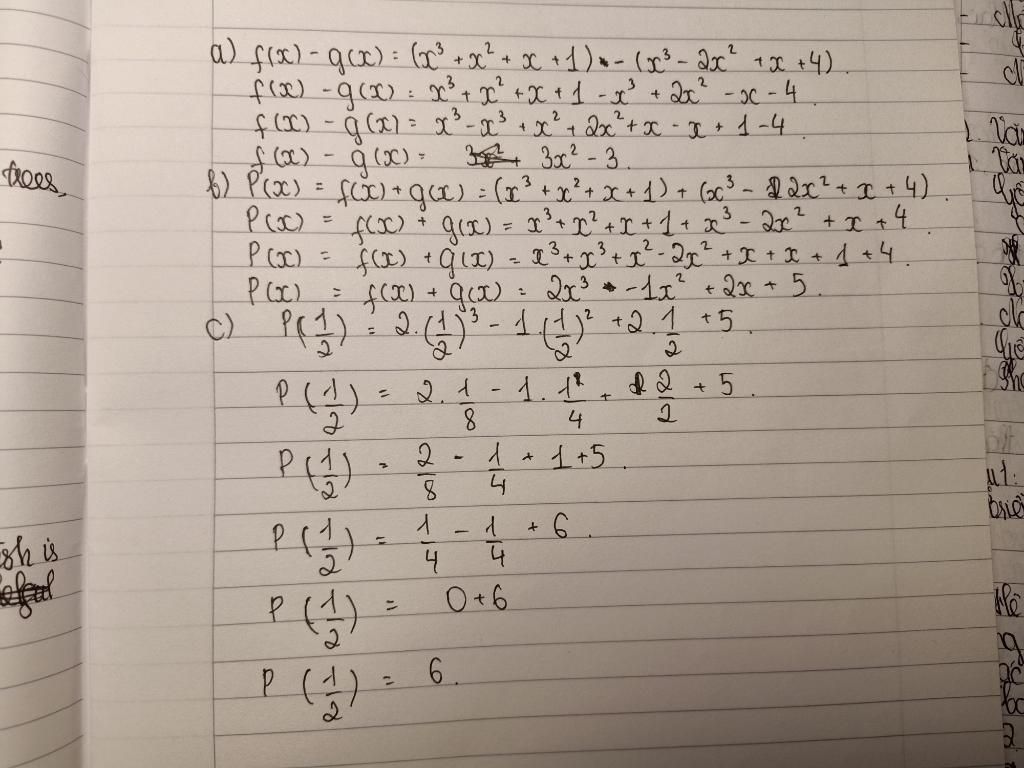 a) f(x) - g(x) = (x³ + x² + x + 1) - (x³ - 2x² + x + 4).
f(x) - g(x) = x³ + x² + x + 1 - x³ + 2x² - x - 4.
f(x) - g(x) = x³ - x³ + x² + 2x² + x - x + 1 - 4.
f(x) - g(x) = 3x² - 3.
b) P(x) = f(x) + g(x) = (x³ + x² + x + 1) + (x³ - 2x² + x + 4).
P(x) = f(x) + g(x) = x³ + x² + x + 1 + x³ - 2x² + x + 4.
P(x) = f(x) + g(x) = x³ + x³ + x² - 2x² + x + x + 1 + 4.
P(x) = f(x) + g(x) = 2x³ - 1x² + 2x + 5.
c) P(1/2) = 2.(1/2)³ - 1.(1/2)² + 2.1/2 + 5.
P(1/2) = 2.1/8 - 1.1/4 + 2/2 + 5.
P(1/2) = 2/8 - 1/4 + 1 + 5.
P(1/2) = 1/4 - 1/4 + 6.
P(1/2) = 0 + 6
P(1/2) = 6.
trees
sh is